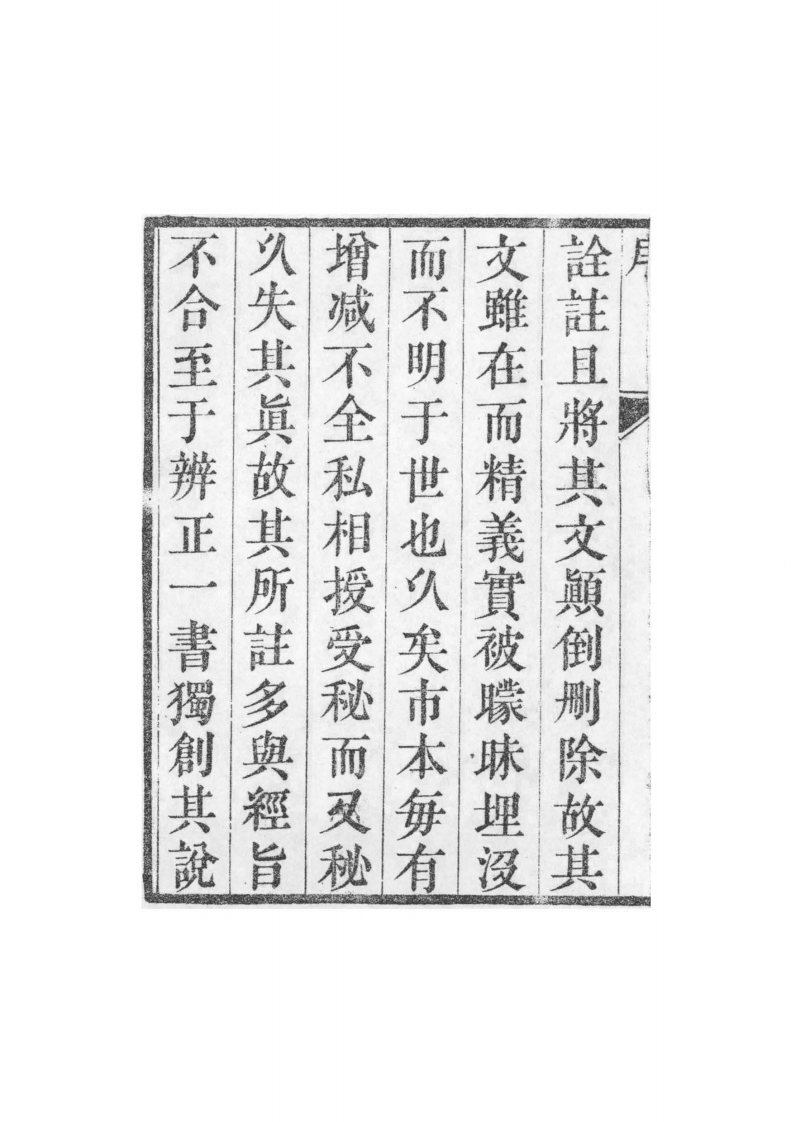 序
詮註且將其文顚倒刪除故其
文雖在而精義實被曚昧埋沒
而不明于世也久矣市本每有
增减不全私相授受秘而又秘
久失其眞故其所註多與經旨
不合至于辨正一書獨創其說